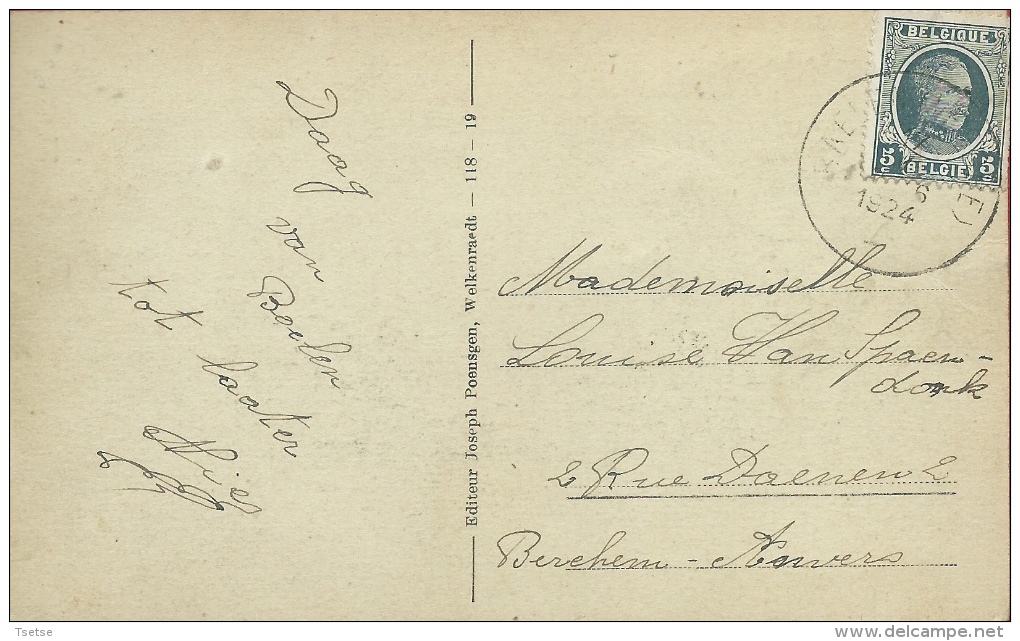 Daag
van
Baelen
tot laater
Editeur Joseph Poensgen, Welkenraedt — 118 – 19
BELGIQUE
5c 5c
BELGIË
BAEL
6
1924
Mademoiselle
Louise Van Spaen-
donk
2 Rue Daenen 2
Berchem - Anvers
Tsetse
delcampe.net